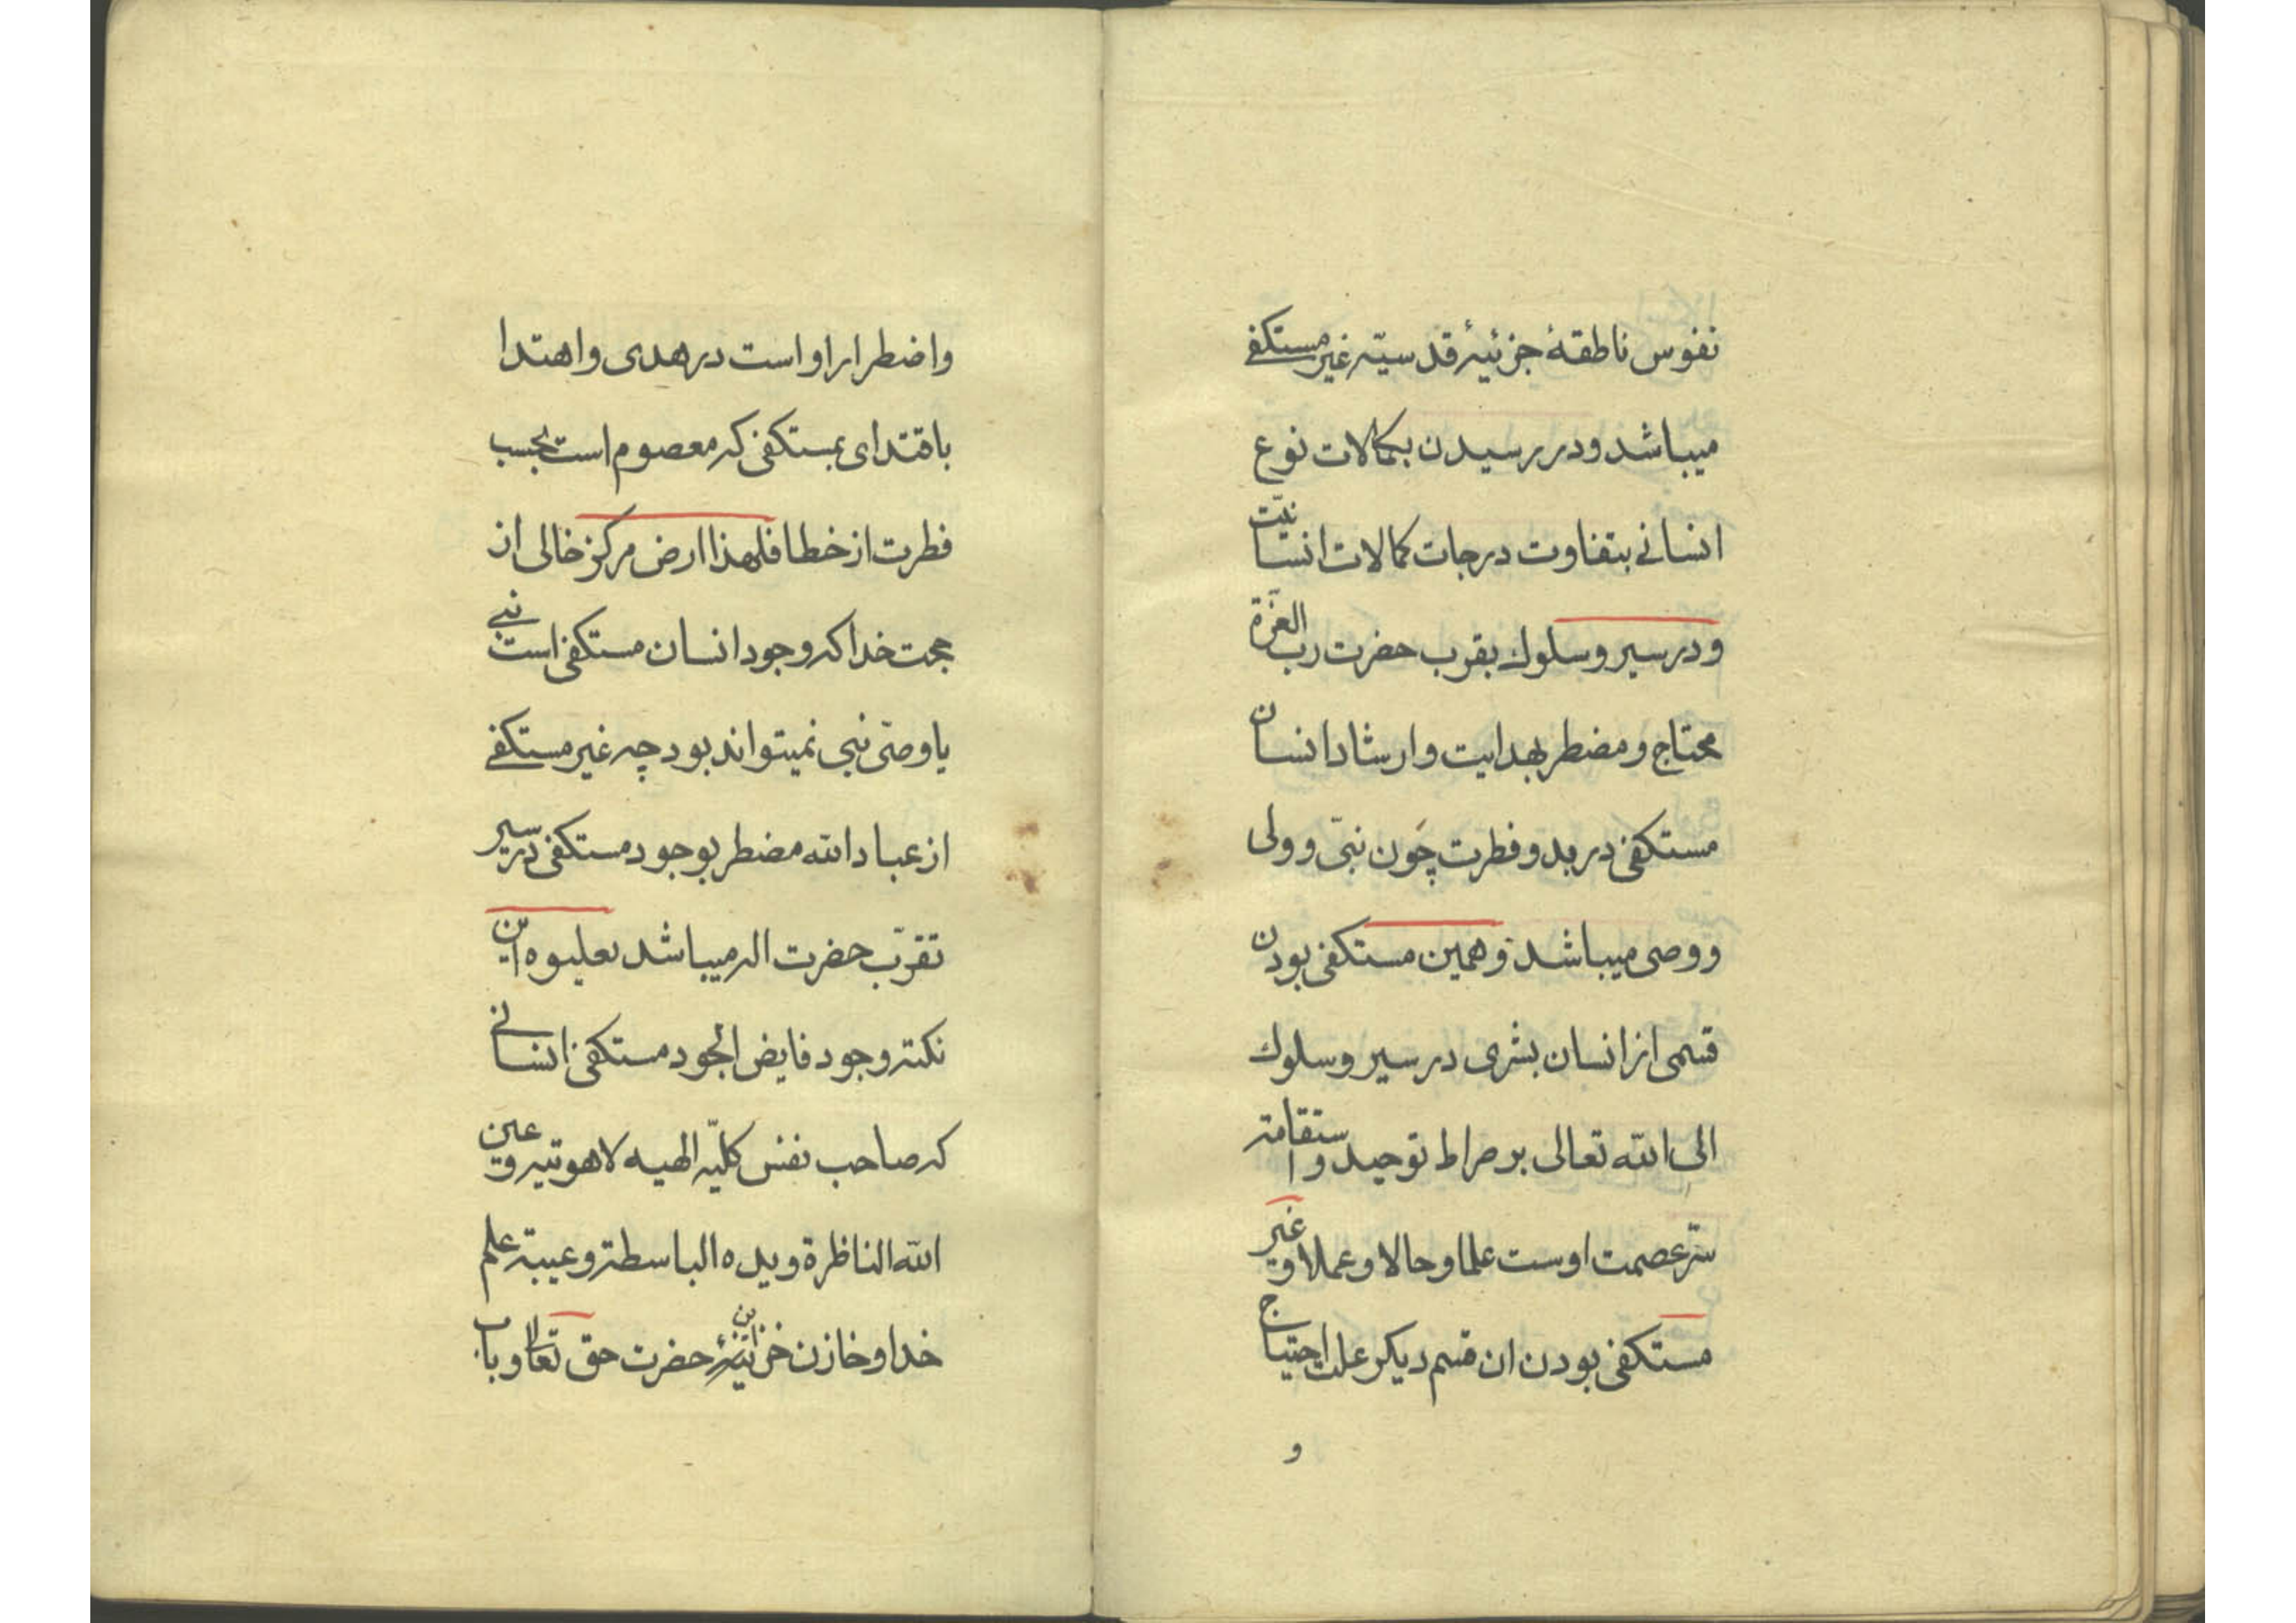 نفوس ناطقهٔ جزئیهٔ قدسیّه غیر مستکفی
میباشد و در رسیدن بکمالات نوع
انسانی بتفاوت درجات کمالات انسانیّت
و در سیر و سلوک بقرب حضرت ربّ العزّة
محتاج و مضطر بهدایت و ارشاد انسان
مستکفی در بدو فطرت چون نبّی و ولی
و وصی میباشد و همین مستکفی بودن
قسمی از انسان بشری در سیر و سلوک
الی الله تعالی بر صراط توحید و استقامته
سّر عصمت اوست علما و حالا و عملا و غیر
مستکفی بودن ان قسم دیکر علت احتیاج
و
و اضطرار او است در هدی و اهتدا
باقتدای بمستکفی که معصوم است بحسب
فطرت از خطا فلهذا ارض مرکز خالی از
حجت خدا که وجود انسان مستکفی است نبی
یا وصّی نبی نمیتواند بود چه غیر مستکفی
از عباد الله مضطر بوجود مستکفی در سیر
تقرّب حضرت اله میباشد بعلیوه این
نکته وجود فایض الجود مستکفی انسانی
که صاحب نفس کلیّه الهیه لاهوتیه و عین
الله الناظرة و یده الباسطة و عیبة علم
خدا و خازن خزاینهٔ حضرت حق تعالی و باب